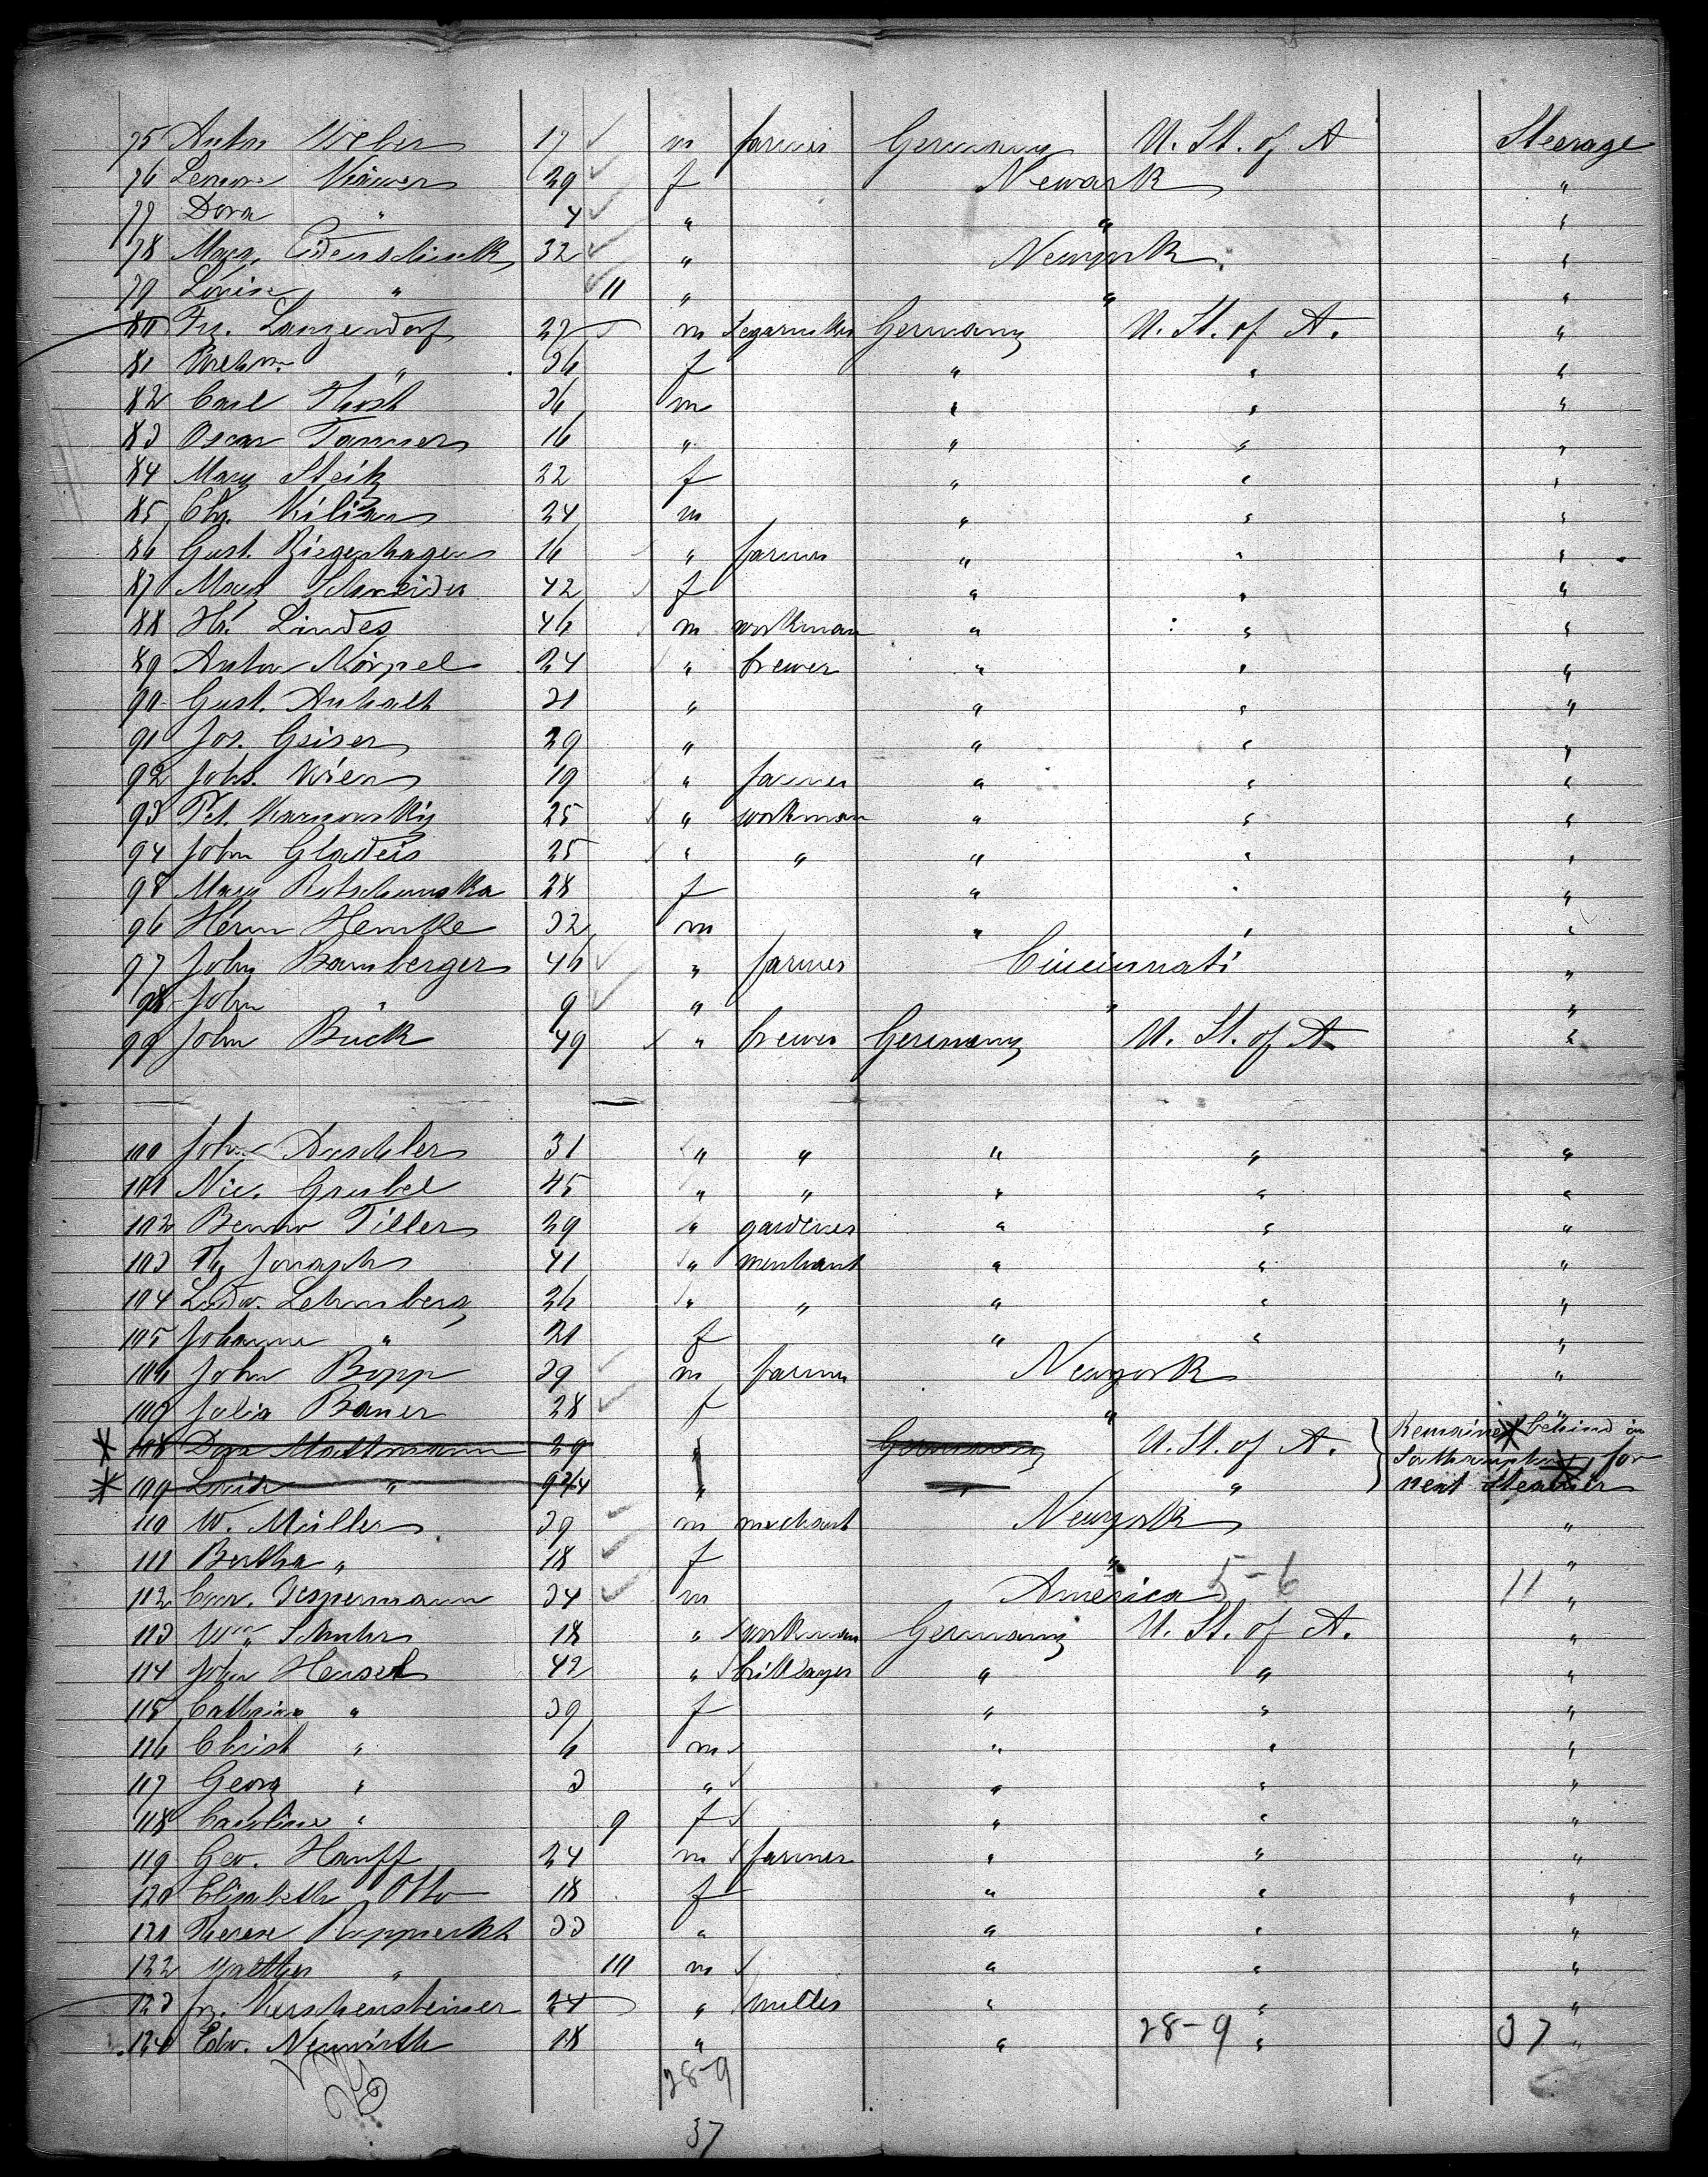 75 Anton Weber 17 m farmer Germany U. St. of A Steerage
76 29 f Newark "
77 Dora " 4 " " "
78 Mary 32 " Newyork "
79 Louise " 11 " " "
80 Fr. Langendorf 27 m Germany U. St. of A. "
81 " 26 f " " "
82 Carl 26 m " " "
83 Oscar Tanner 16 " " " "
84 Mary Steitz 22 f " " "
85 Chr. Kilian 24 m " " "
86 Gust. Ziegenhagen 16 " farmer " " "
87 Mary Schneider 42 f " " "
88 Hr. Lindes 46 m workman " " "
89 Anton Nörpel 24 " brewer " " "
90 Gust. Anhalt 21 " " " "
91 Jos. Geiser 29 " " " "
92 Johs. 19 " farmer " " "
93 Pet. 25 " workman " " "
94 John Gladeis 25 " " " " "
98 Mary 28 f " " "
96 Herm Hemke 32 m " " "
97 John Bamberger 46 " farmer Cincinnati "
98 John " 9 " " "
99 John Bück 49 " brewer Germany U. St. of A "
100 John 31 " " " " "
101 Nic. Grubel 45 " " " " "
102 Benno Tiller 29 " gardener " " "
103 Th. Jonasch 41 " merchant " " "
104 Ludw. Lehmberg 26 " " " " "
105 Johanne " 21 f " " "
106 John Bopp 39 m farmer Newyork "
107 Julia Bauer 28 f " "
* 108 Dora 29 " Germany U. St. of A. Remained behind in
* 109 Louise " 9 3/4 " " " Southampton for
next Steamer
110 W. Müller 39 m merchant Newyork "
111 Bertha " 18 f " "
112 Vespermann 34 m America 5-6 11 "
113 Wm Schuhr 18 " workman Germany U. St. of A. "
114 John Hensel 42 " bricklayer " " "
115 Cathrine " 39 f " " "
116 Christ " 6 m " " "
117 Georg " 3 " " " "
118 Caroline " 9 f " " "
119 Geo. Hauff 24 m farmer " " "
120 Elisabeth Otto 18 f " " "
121 Therese Rupprecht 33 " " " "
122 Walther " 111 m " " "
123 Fr. Kerschensteiner 24 " miller " " "
124 Edw. Neuwirth 18 " " 28-9 " 37 "
28-9
37